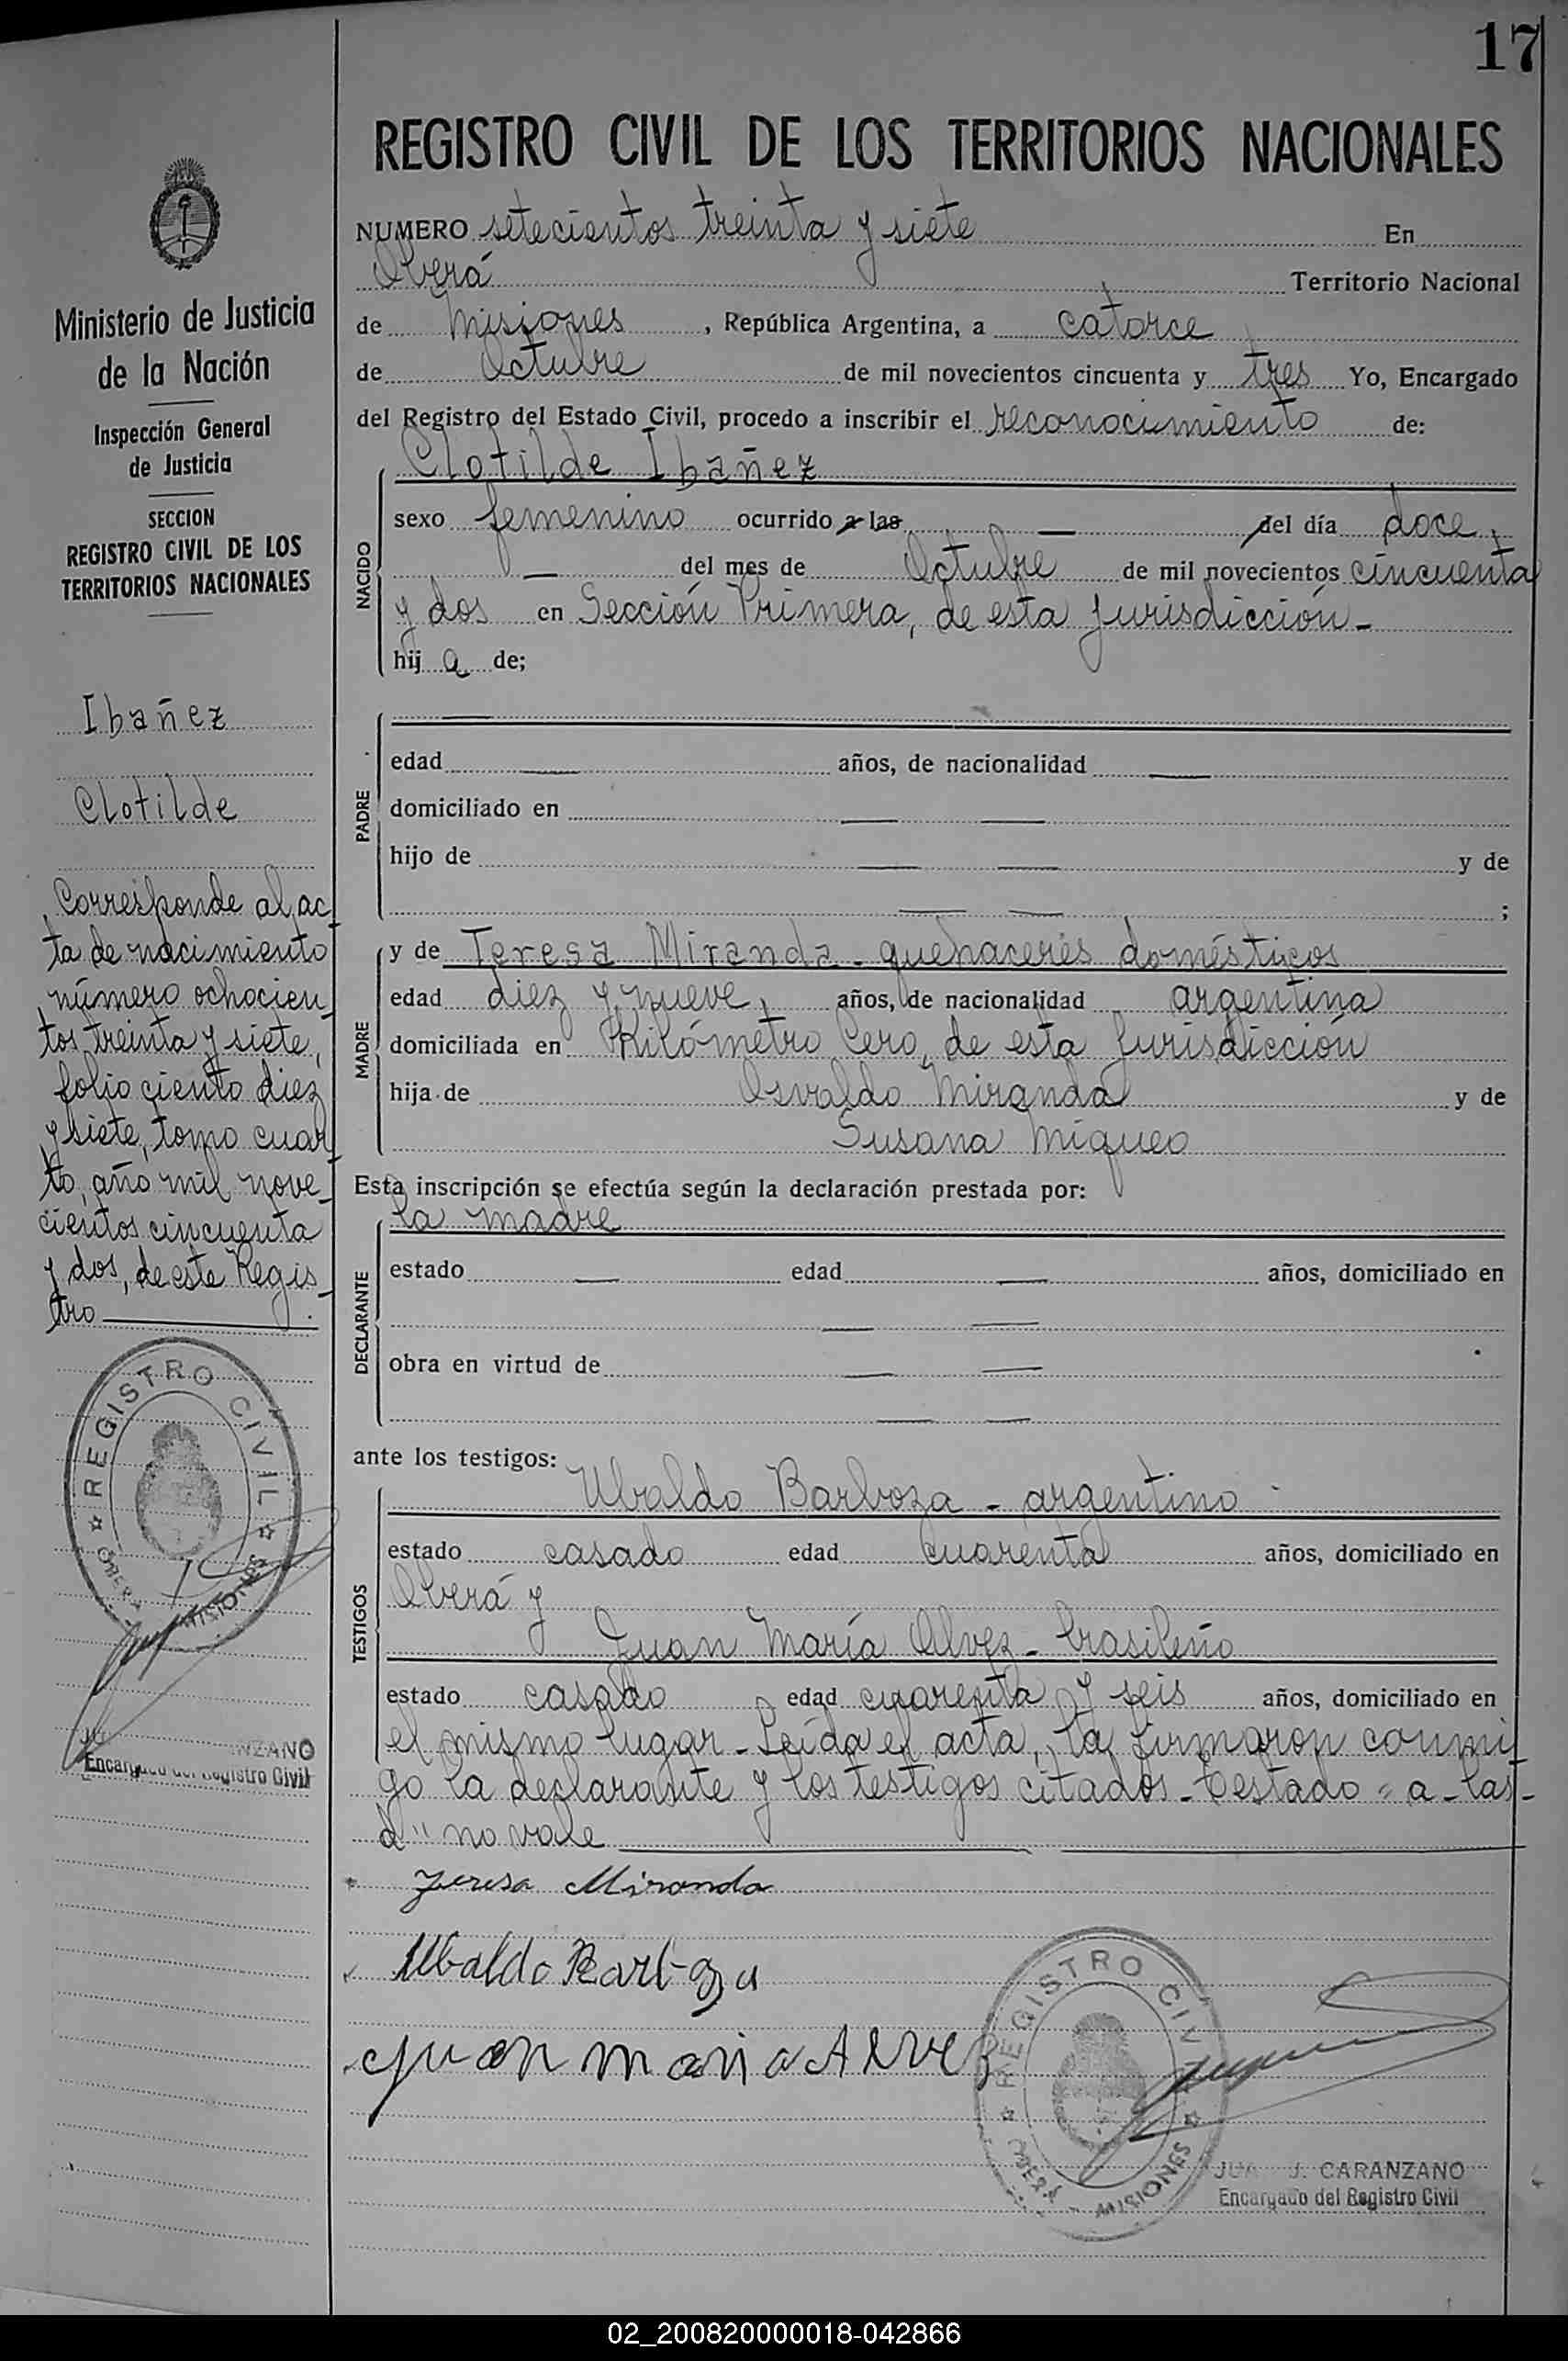 17
REGISTRO CIVIL DE LOS TERRITORIOS NACIONALES
NUMERO setecientos treinta y siete En
Oberá Territorio Nacional
de Misiones, República Argentina, a catorce
de Octubre de mil novecientos cincuenta y tres Yo, Encargado
del Registro del Estado Civil, procedo a inscribir el reconocimiento de:
Clotilde Ibañez
NACIDO
sexo femenino ocurrido a las — del día doce,
— del mes de Octubre de mil novecientos cincuenta
y dos en Sección Primera, de esta Jurisdicción-
hij a de;
PADRE
edad — años, de nacionalidad —
domiciliado en — —
hijo de — — y de
— — ;
MADRE
y de Teresa Miranda - quehaceres domésticos
edad diez y nueve, años, de nacionalidad argentina
domiciliada en Kilómetro Cero, de esta Jurisdicción
hija de Osvaldo Miranda y de
Susana Miqueo
Esta inscripción se efectúa según la declaración prestada por:
la madre
DECLARANTE
estado — edad — años, domiciliado en
— —
obra en virtud de — —
— —
ante los testigos:
TESTIGOS
Ubaldo Barboza - argentino
estado casado edad cuarenta años, domiciliado en
Oberá y
Juan María Alvez - brasileño
estado casado edad cuarenta y seis años, domiciliado en
el mismo lugar - Leída el acta, la firmaron conmi
go la declarante y los testigos citados - Testado "a - las -
d" no vale
Teresa Miranda
Ubaldo Barboza
Juan maria Alvez
REGISTRO CIVIL
OBERA - MISIONES
JUAN J. CARANZANO
Encargado del Registro Civil
Ministerio de Justicia
de la Nación
Inspección General
de Justicia
SECCION
REGISTRO CIVIL DE LOS
TERRITORIOS NACIONALES
Ibañez
Clotilde
Corresponde al ac-
ta de nacimiento
número ochocien-
tos treinta y siete,
folio ciento diez
y siete, tomo cuar
to, año mil nove-
cientos cincuenta
y dos, de este Regis-
tro
REGISTRO CIVIL
OBERA - MISIONES
Encargado del Registro Civil
02_200820000018-042866